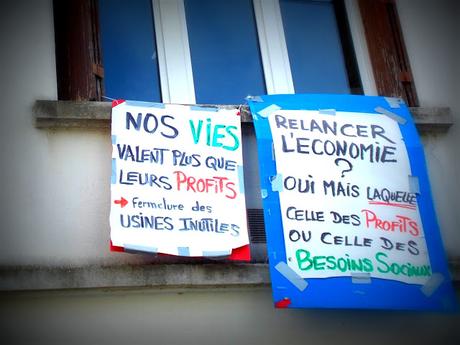 NOS VIES
VALENT PLUS QUE
LEURS PROFITS
→ Fermeture des
USINES INUTILES
RELANCER
L'ECONOMIE
?
OUI MAIS LAQUELLE
CELLE DES PROFITS
OU CELLE DES
BESOINS SOCIAUX